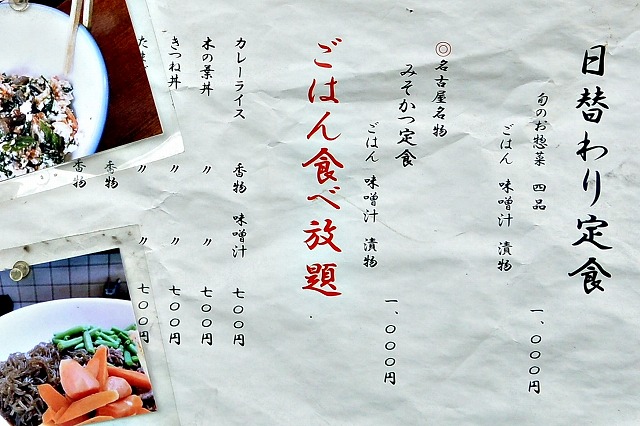 日替わり定食
旬のお惣菜 四品
ごはん 味噌汁 漬物
一、〇〇〇円
◎名古屋名物
みそかつ定食
ごはん 味噌汁 漬物
一、〇〇〇円
ごはん食べ放題
カレーライス 香物 味噌汁 七〇〇円
木の葉丼 〃 〃 七〇〇円
きつね丼 〃 〃 七〇〇円
〃 〃 七〇〇円
香物
香物